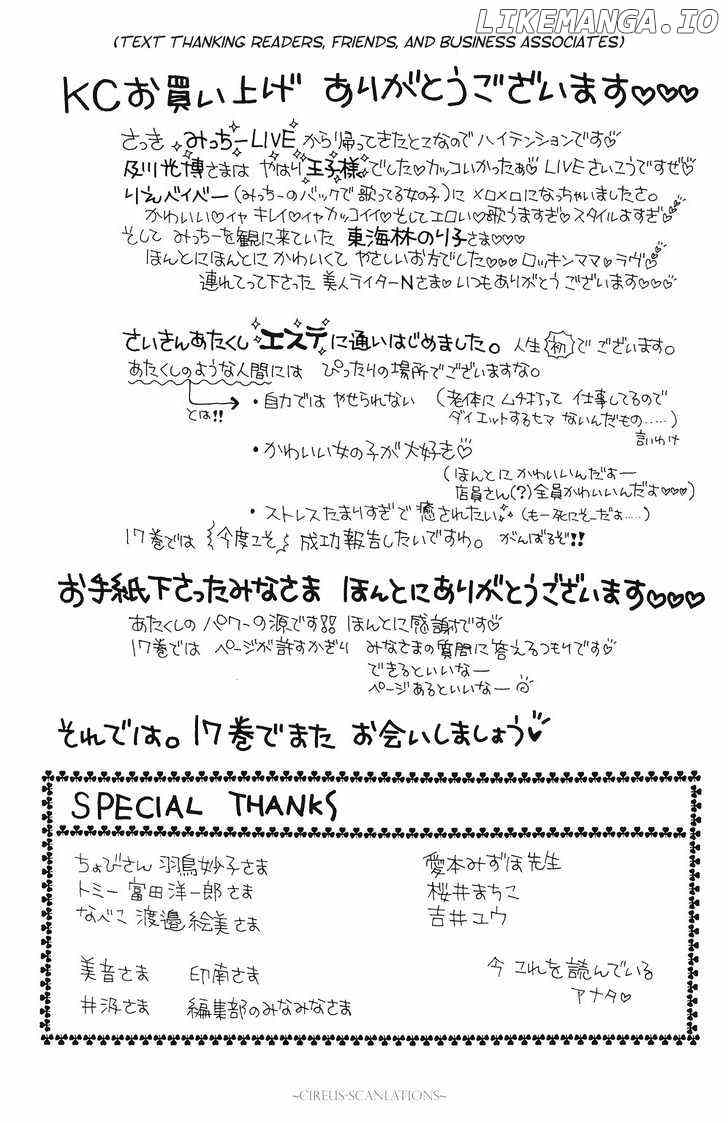 LIKEMANGA.IO
(TEXT THANKING READERS, FRIENDS, AND BUSINESS ASSOCIATES)
KCお買い上げ ありがとうございます♡♡♡
さっき みっちーLIVE から帰ってきたとこなので ハイテンションです♡
及川光博さまは やはり 王子様 でした♡カッコいかったあ♡ LIVE さいこうですぜ♡
りえベイベー (みっちーのバックで歌ってる女の子)に メロメロになっちゃいましたさ。
かわいい♡イヤ キレイ♡イヤ カッコイイ♡そして エロい♡歌うますぎ♡スタイルよすぎ♡
そして みっちーを観に来ていた 東海林のり子さま♡♡♡
ほんとにほんとに かわいくて やさしいお方でした♡♡♡ ロッキンママ♡ラヴ♡
連れてって下さった 美人ライターNさま♡ いつもありがとうございます♡♡♡
さいきんあたくし エステに通いはじめました。人生(初)でございます。
あたくしのような人間には ぴったりの場所でございますな。
とは!! → ・自力では やせられない (老体に ムチ打って 仕事してるので
ダイエットするヒマ ないんだもの.....)
言いわけ
・かわいい女の子が大好き♡
(ほんとに かわいいんだよー
店員さん(?)全員かわいいんだよ♡♡♡)
・ストレスたまりすぎで 癒されたい (もー死にそーだよ.....)
17巻では 今度こそ 成功報告したいですわ。 がんばるぞ!!
お手紙下さったみなさま ほんとにありがとうございます♡♡♡
あたくしの パワーの源です ほんとに感謝です♡
17巻では ページが許すかぎり みなさまの質問に 答えるつもりです♡
できるといいなー
ページあるといいなー
それでは。17巻でまた お会いしましょう♡
SPECIAL THANKS
ちょびさん 羽鳥妙子さま
トミー 富田洋一郎さま
なべこ 渡邉絵美さま
美音さま 印南さま
井汲さま 編集部のみなみなさま
愛本みずほ先生
桜井まちこ
吉井ユウ
今 これを読んでいる
アナタ♡
~CIREUS-SCANLATIONS~